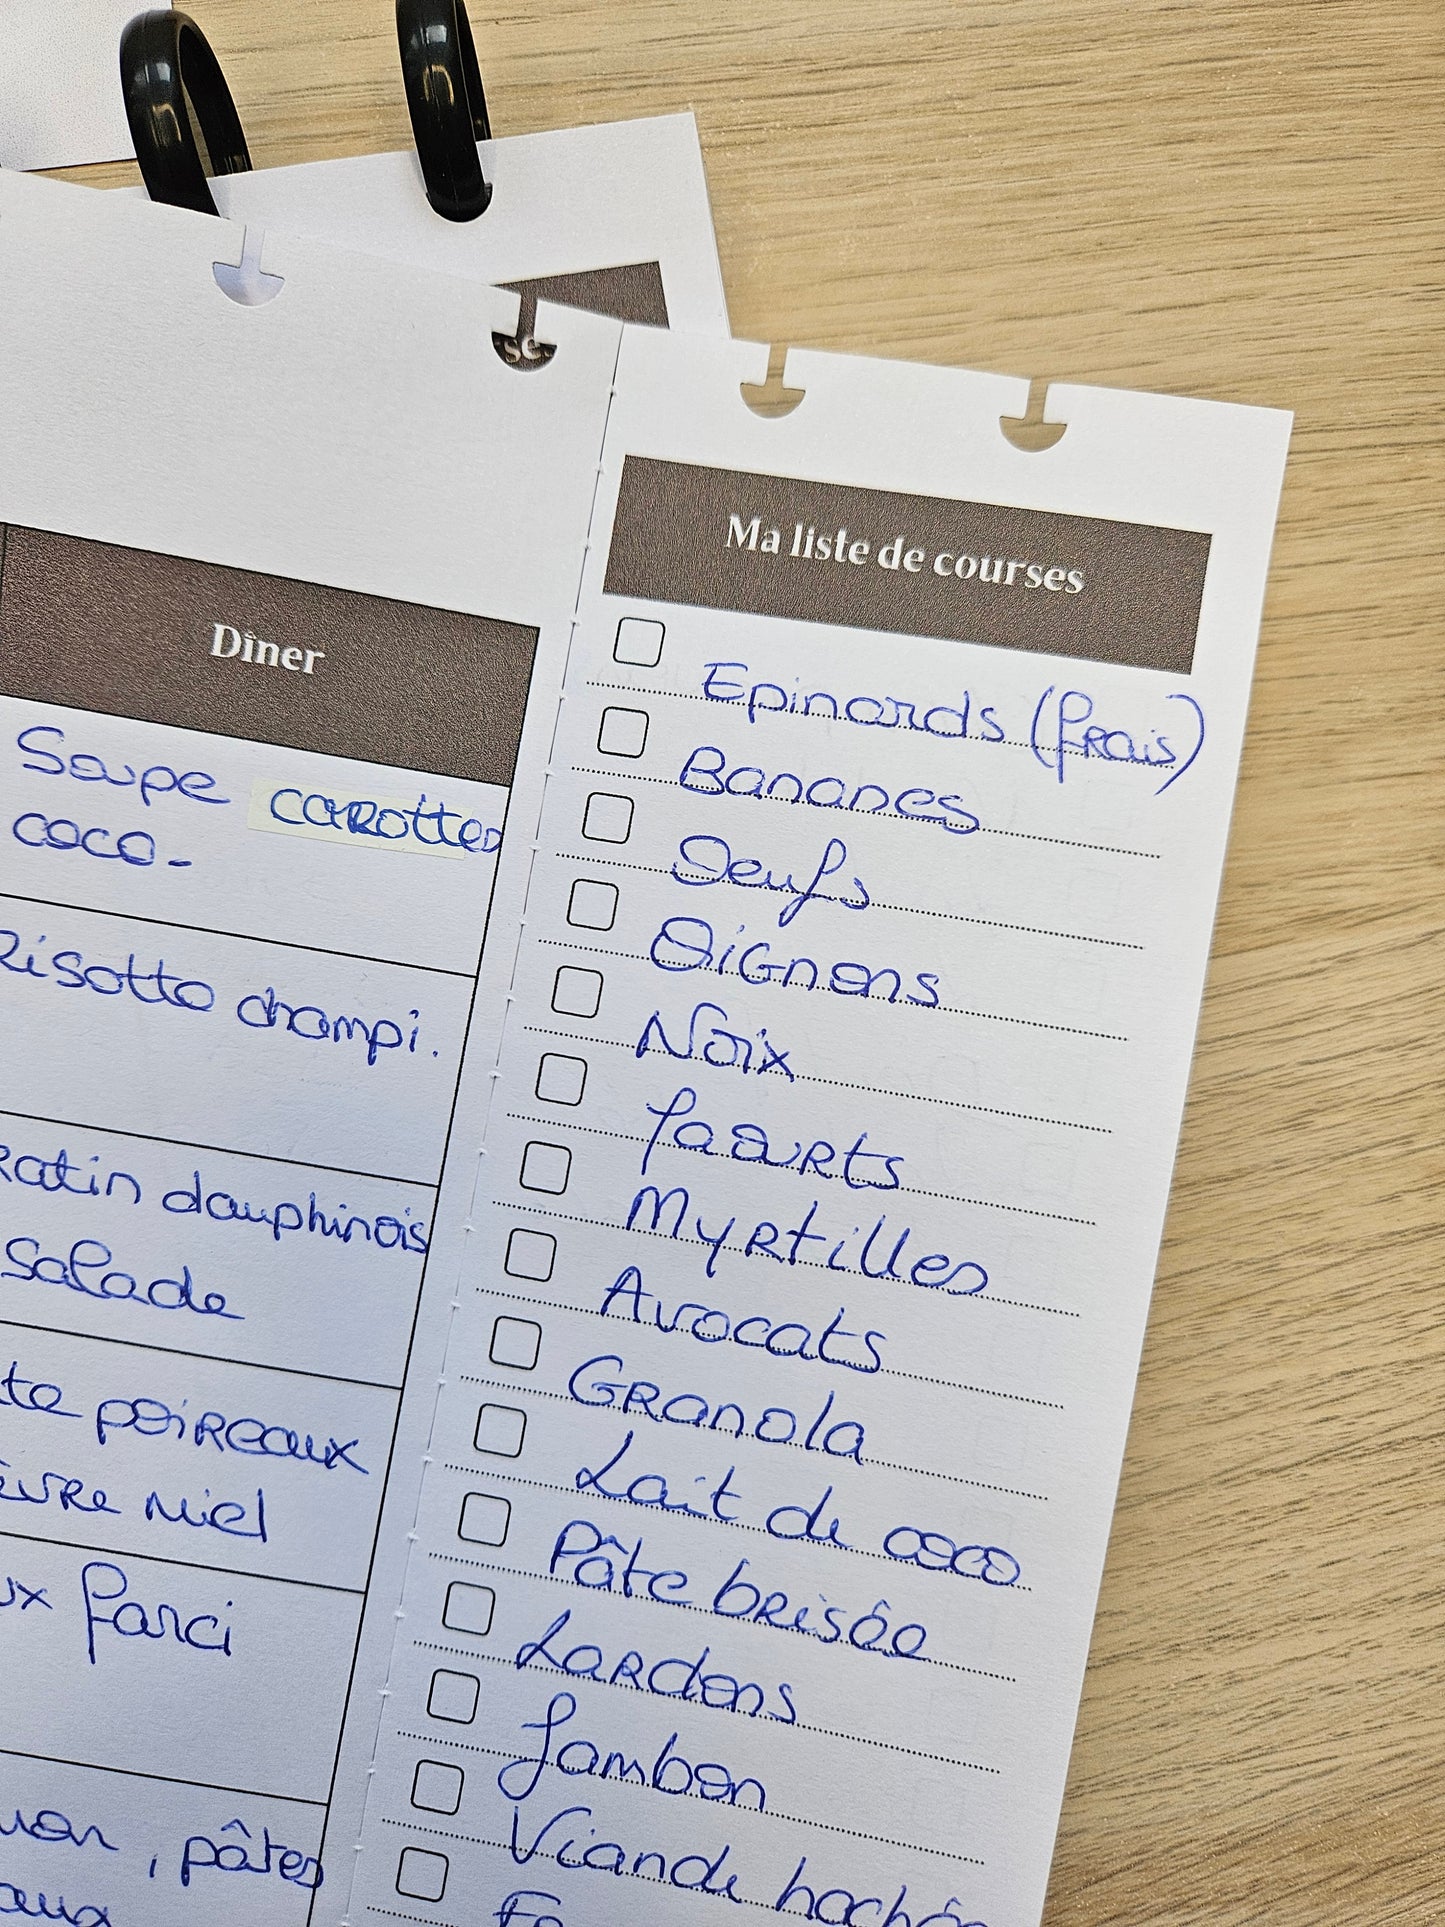 se
Dîner
Soupe carottes
coco-
Risotto champi.
ratin dauphinois
salade
te poireaux
èvre miel
ux farci
, pâtes
aux
Ma liste de courses
Epinards (frais)
Bananes
Oeufs
Oignons
Noix
Yaourts
Myrtilles
Avocats
Granola
Lait de coco
Pâte brisée
Lardons
Jambon
Viande hachée